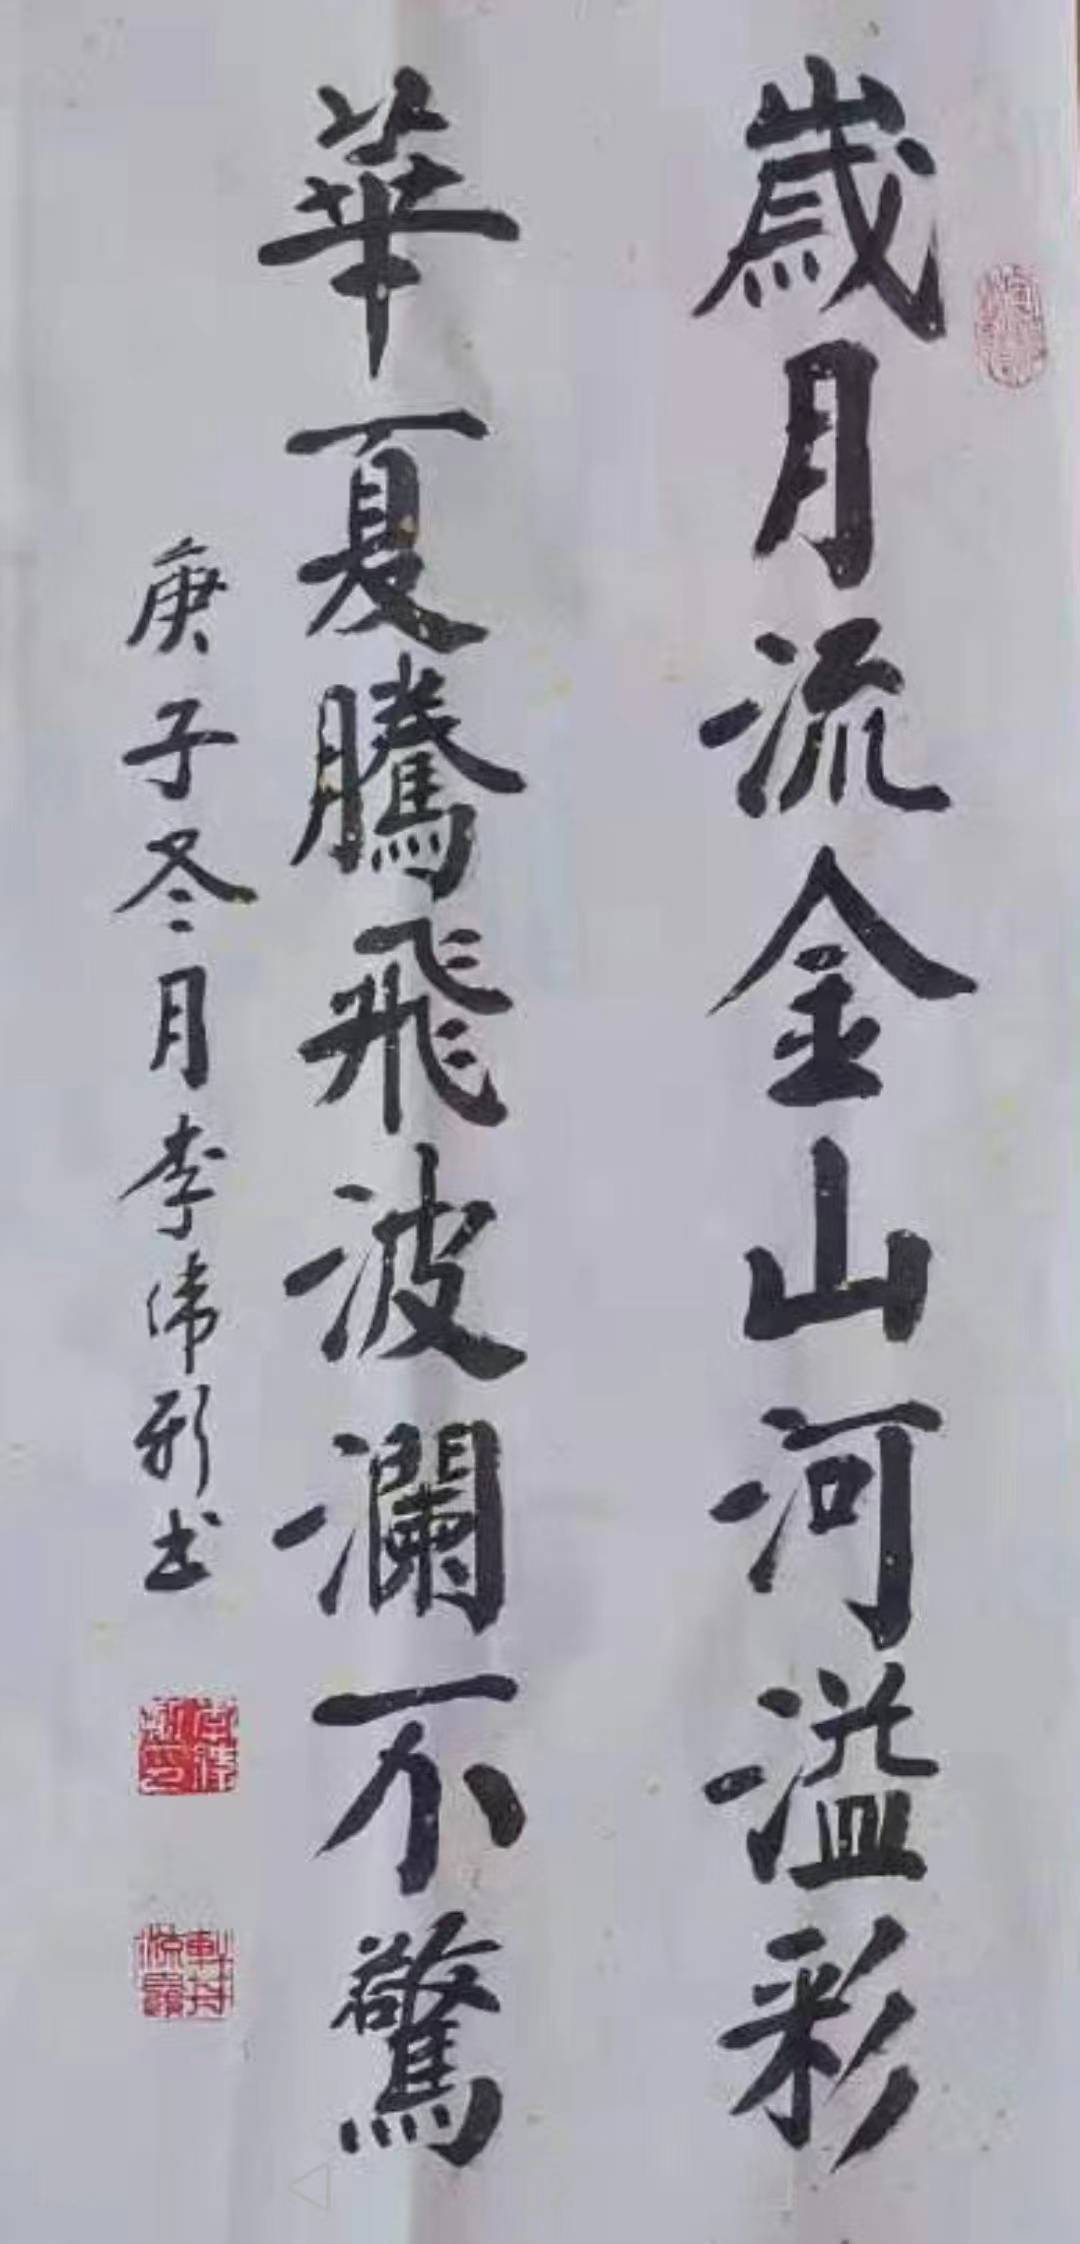 歲月流金山河溢彩
華夏騰飛波瀾不驚
庚子冬月李偉新書